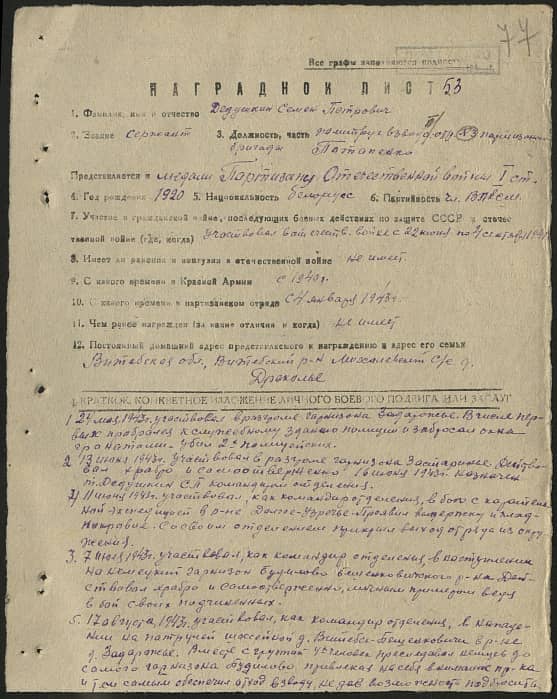 77
Все графы заполняются полностью
НАГРАДНОЙ ЛИСТ 53
1. Фамилия, имя и отчество Дедушкин Семен Петрович
2. Звание сержант 3. Должность, часть политрук взвода
бригады Потапенко
Представляется к медали Партизану Отечественной войны I ст.
4. Год рождения 1920 5. Национальность белорус 6. Партийность чл. ВЛКСМ
7. Участие в гражданской войне, последующих боевых действиях по защите СССР и отечест-
венной войне (где, когда) участвовал в отечеств. войне с 22 июня по 4 сентября 1941
8. Имеет ли ранения и контузии в отечественной войне не имеет
9. С какого времени в Красной Армии с 1940 г.
10. С какого времени в партизанском отряде с 4 января 1943 г.
11. Чем ранее награжден (за какие отличия и когда) не имеет
12. Постоянный домашний адрес представляемого к награждению и адрес его семьи
Витебская обл., Витебский р-н Михалевский с/с д.
Драколье
I. КРАТКОЕ, КОНКРЕТНОЕ ИЗЛОЖЕНИЕ ЛИЧНОГО БОЕВОГО ПОДВИГА ИЛИ ЗАСЛУГ
1. 24 мая 1943 г. участвовал в разгроме гарнизона Задорожье. В числе пер-
вых пробрался к служебному зданию полиции и забросал окна
гранатами. Убил 2-х полицейских.
2. 13 июня 1943 г. участвовал в разгроме гарнизона Застаринье. Действо-
вал храбро и самоотверженно. июня 1943 г. назначен
т. Дедушкин С.П. командиром отделения.
11 июня 1943 г. участвовал, как командир отделения, в бою с каратель-
ной экспедицией в р-не
Со своим отделением прикрыл выход отряда из окру-
жения.
3. 7 июля 1943 г. участвовал, как командир отделения, в наступлении
на немецкий гарнизон Будилово Бешенковичского р-на. Дей-
ствовал храбро и самоотверженно, личным примером ведя
в бой своих подчиненных.
5. 17 августа 1943 г. участвовал, как командир отделения, в нападе-
нии на патрулей шоссейной д. Витебск-Бешенковичи в р-не
д. Задорожье. Вместе с группой человек преследовал немцев до
самого гарнизона Будилово, привлекая на себя внимание пр-ка
и тем самым обеспечил отход взводу, не дав возможность подбросить